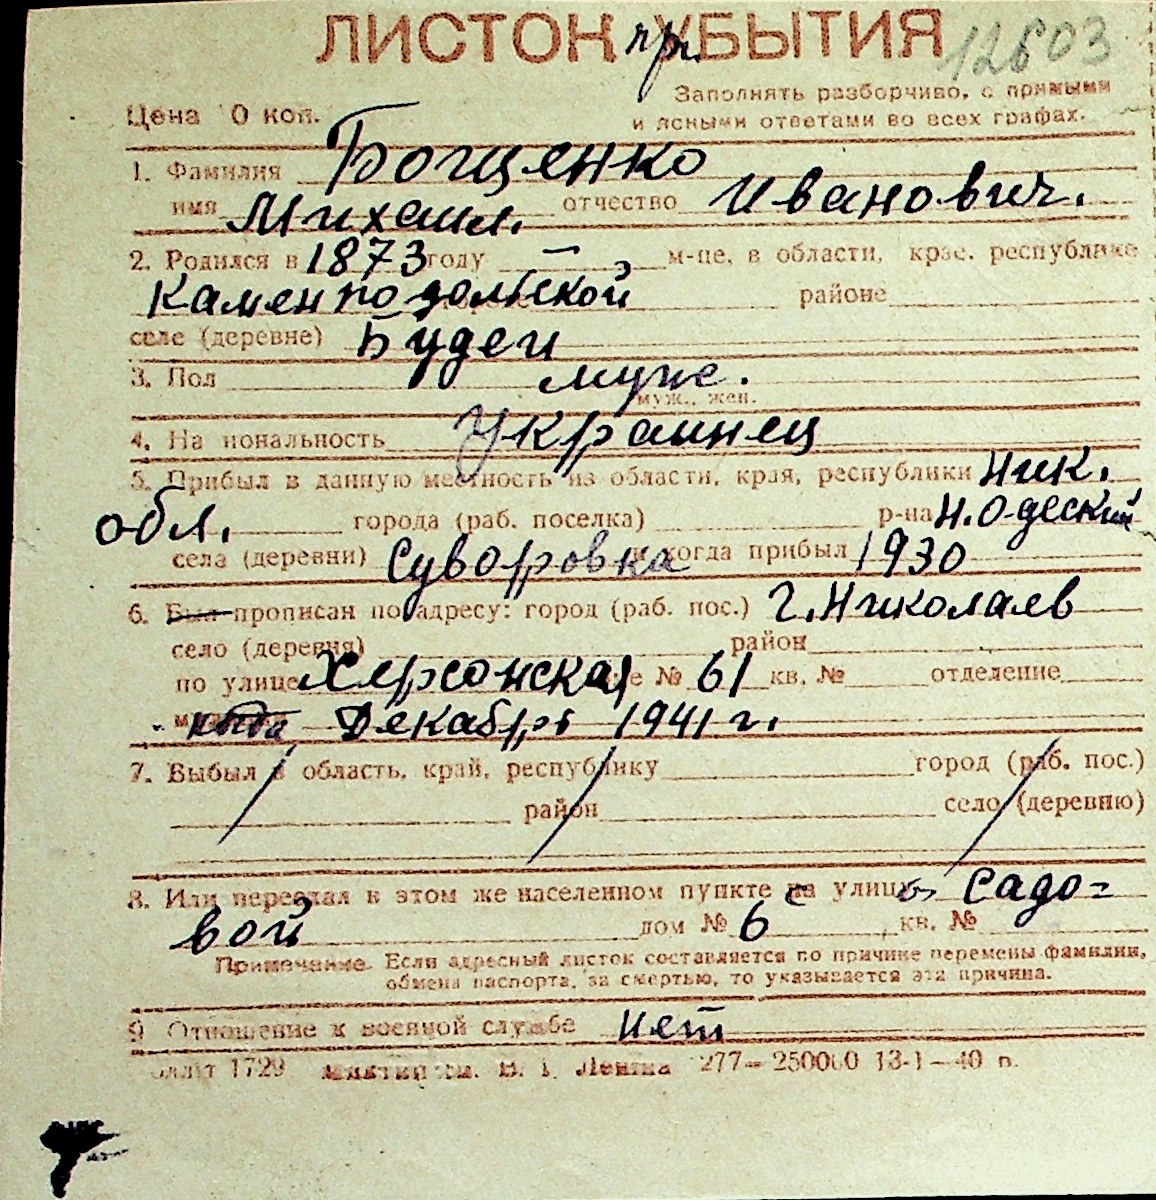 ЛИСТОК при УБЫТИЯ 12603
Заполнять разборчиво, с прямыми
Цена 10 коп. и ясными ответами во всех графах.
1. Фамилия Бощенко
имя Михаил. отчество Иванович.
2. Родился в 1873 году — м-це, в области, крае, республике
Камен подольской районе
селе (деревне) Будеи
3. Пол муж.
муж., жен.
4. Национальность Украинец
5. Прибыл в данную местность из области, края, республики Ник.
обл. города (раб. поселка) р-на Н.Одеский
села (деревни) Суворовка и когда прибыл 1930
6. Был прописан по адресу: город (раб. пос.) г. Николаев
село (деревня) район
по улице Херсонская № 61 кв. № отделение
Декабре 1941 г.
7. Выбыл в область, край, республику город (раб. пос.)
район село (деревню)
8. Или переехал в этом же населенном пункте на улицу Садо-
вой дом № 6 кв. №
Примечание. Если адресный листок составляется по причине перемены фамилии,
обмена паспорта, за смертью, то указывается эта причина.
9 Отношение к военной службе нет
1729 Ленина 277—250000 13-1—40 р.